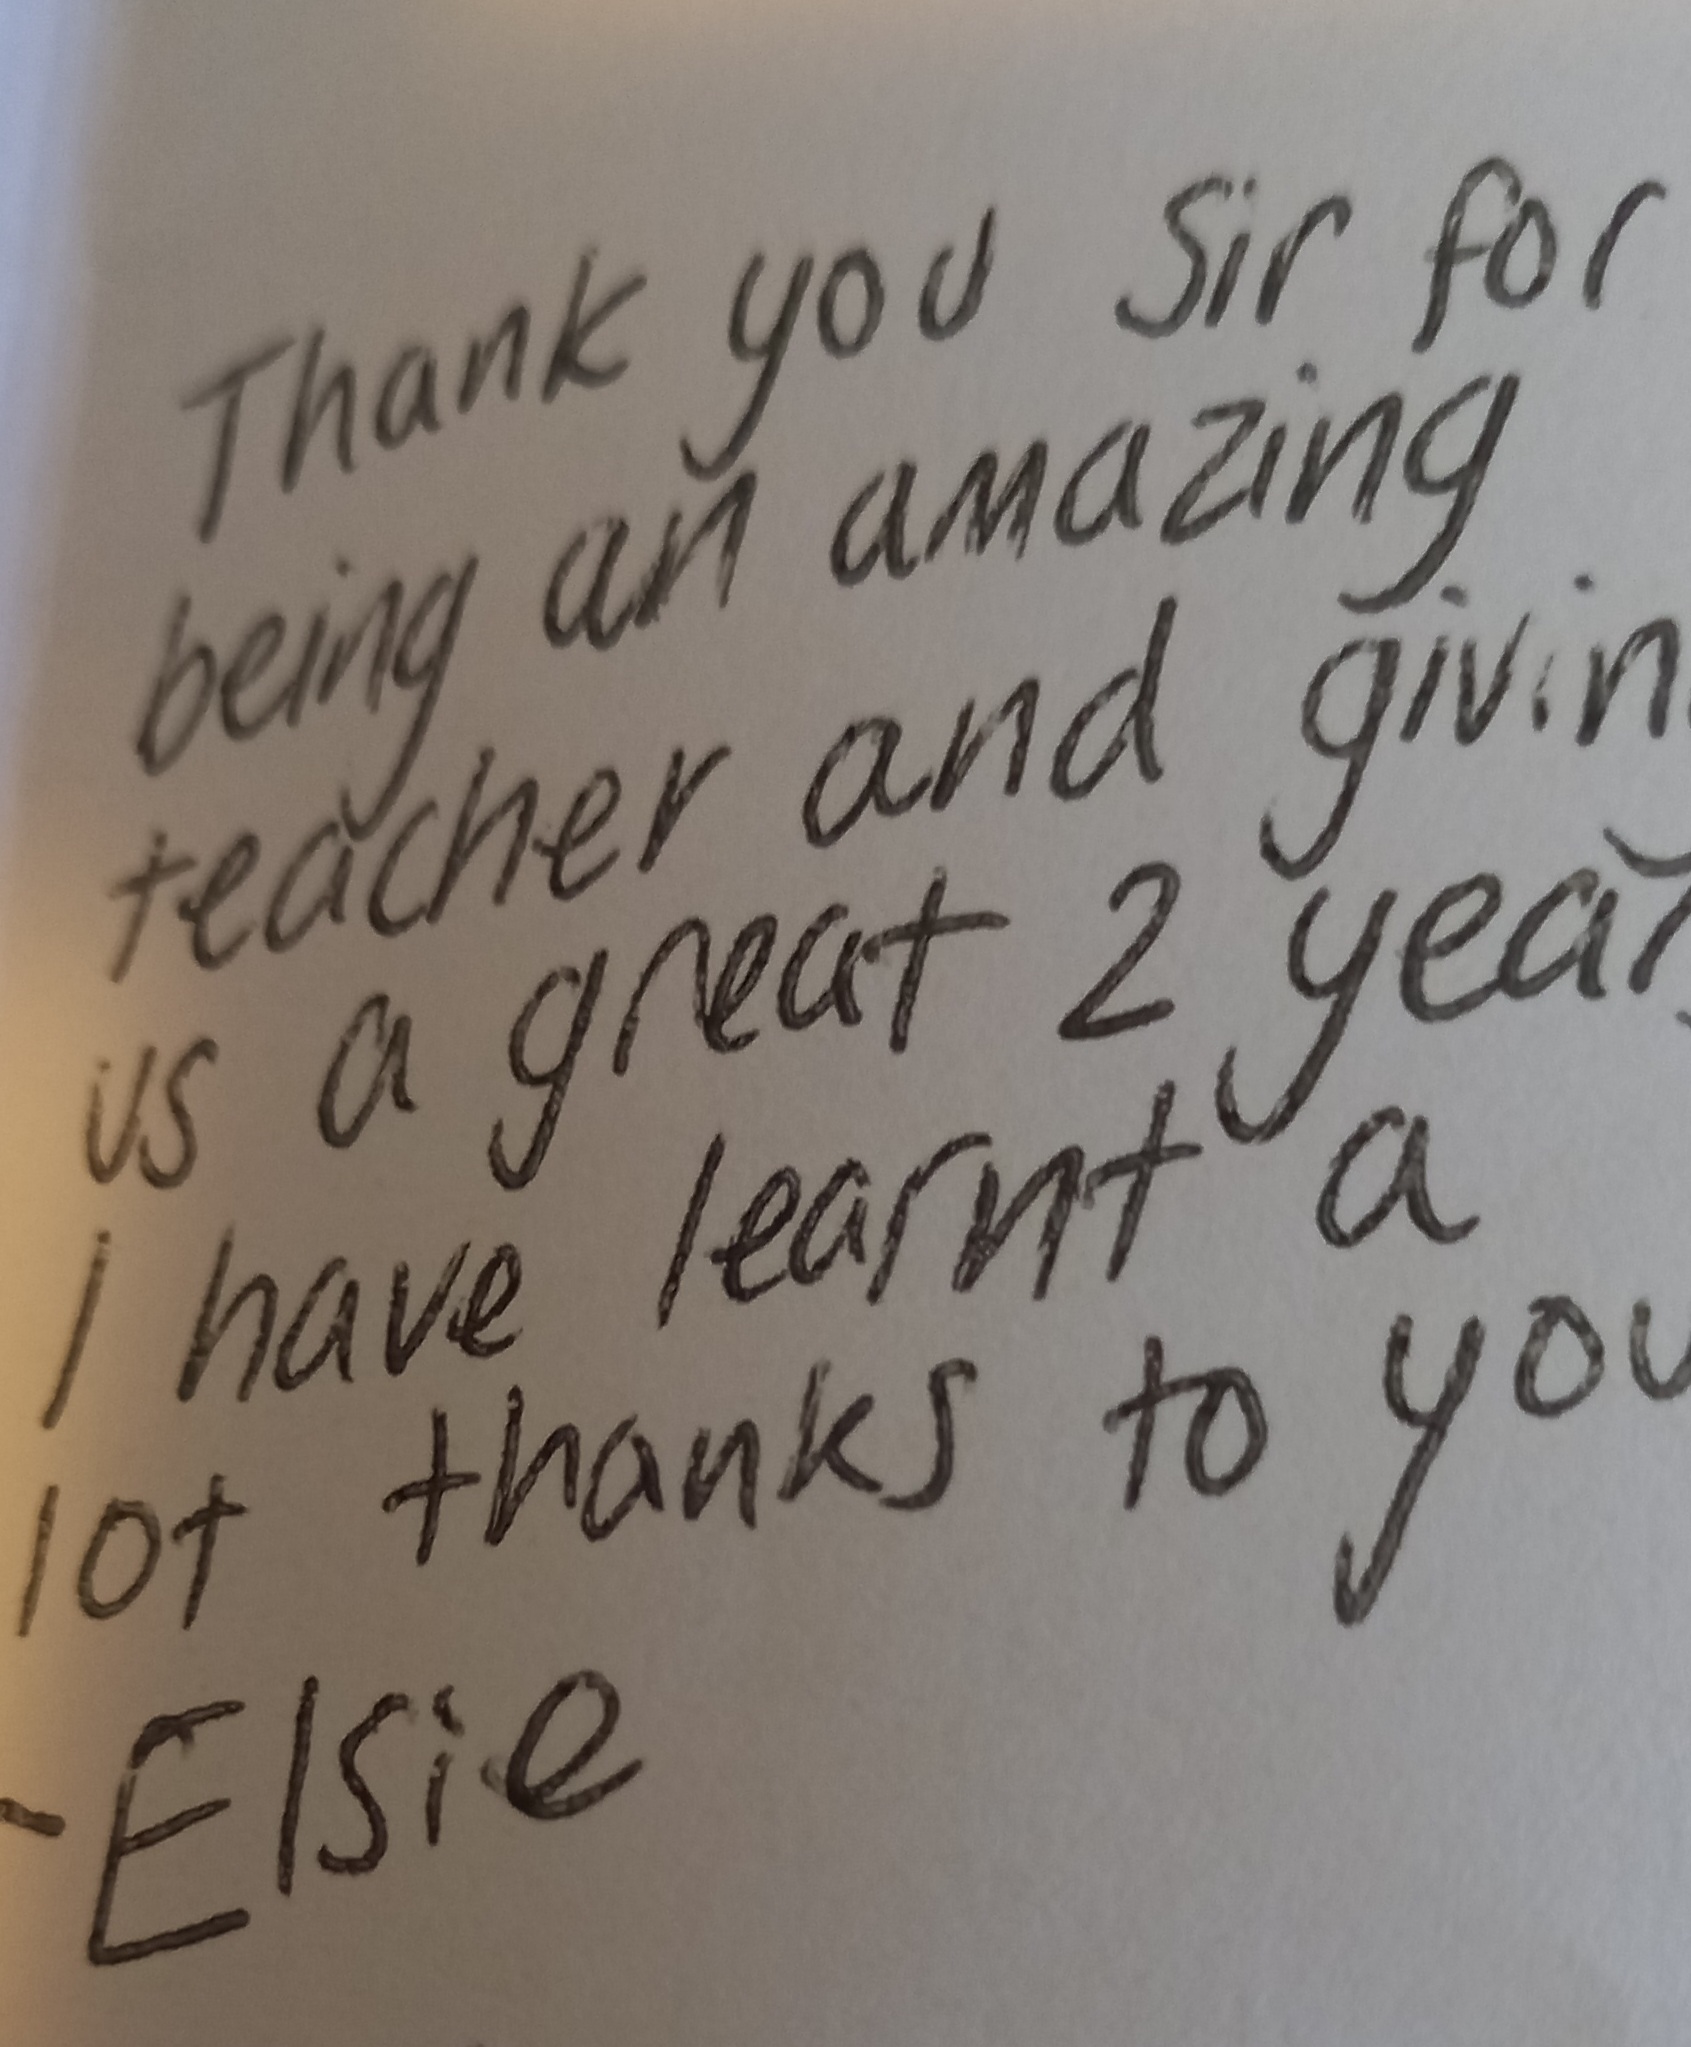 Thank you Sir for
being an amazing
teacher and givin
us a great 2 year
I have learnt a
lot thanks to you
- Elsie